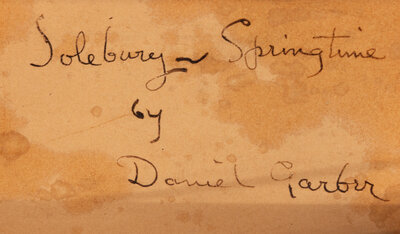 Solebury ~ Springtime
by
Daniel Garber